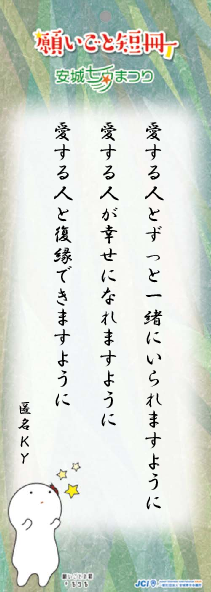 願いごと短冊
安城七夕まつり
愛する人とずっと一緒にいられますように
愛する人が幸せになれますように
愛する人と復縁できますように
匿名KY
JCI